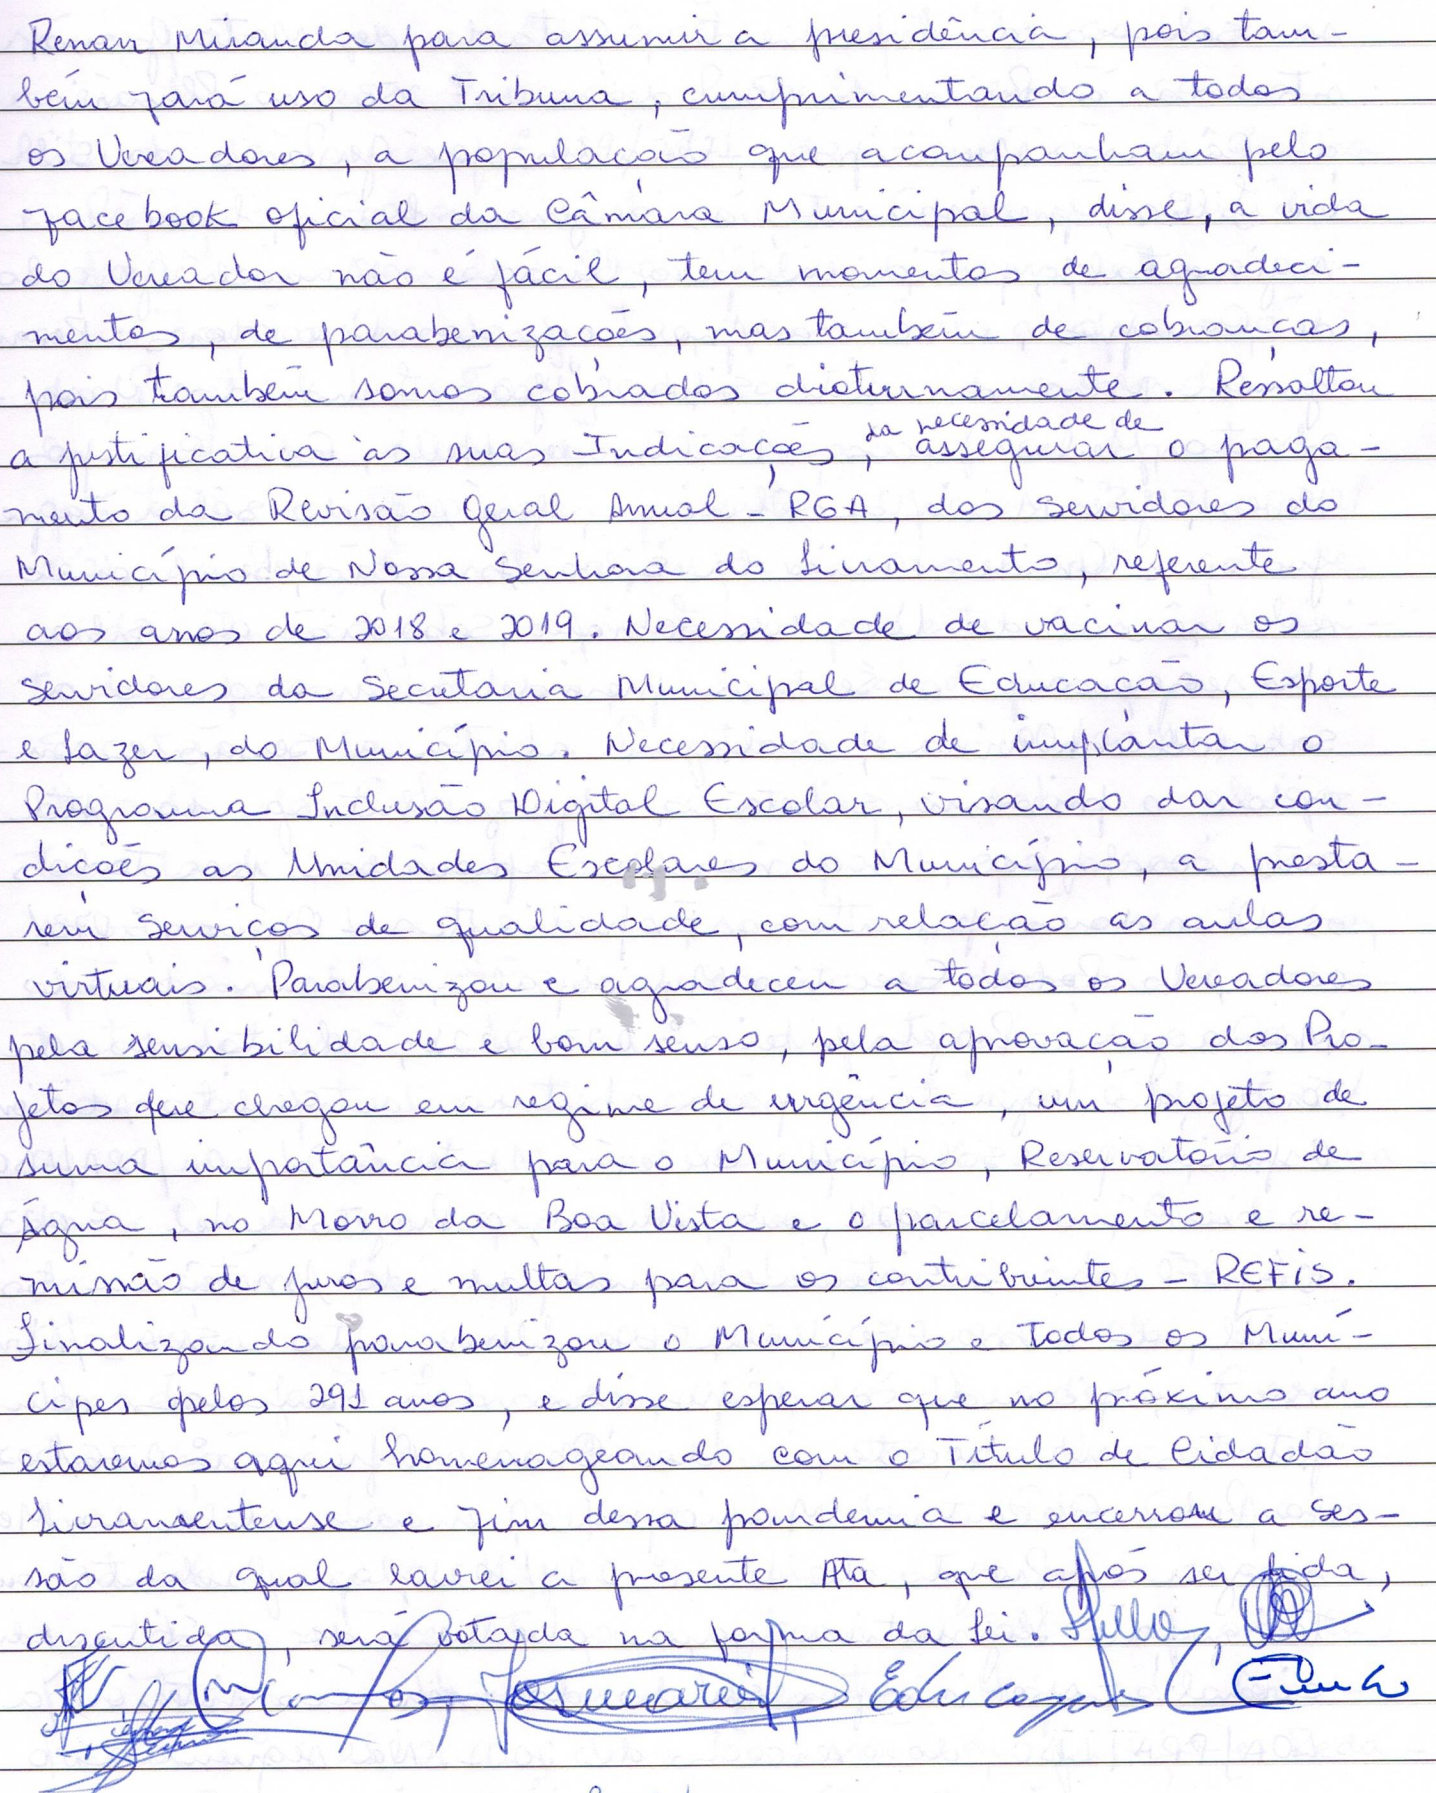 Renan Miranda para assumir a presidência, pois tam-
bém fará uso da Tribuna, cumprimentando a todos
os Vereadores, a população que acompanham pelo
facebook oficial da Câmara Municipal, disse, a vida
do Vereador não é fácil, tem momentos de agradeci-
mentos, de parabenizações, mas também de cobranças,
pois também somos cobrados dioturnamente. Ressaltou
a justificativa às suas Indicações, da necessidade de assegurar o paga-
mento da Revisão Geral Anual - RGA, dos servidores do
Município de Nossa Senhora do Livramento, referente
aos anos de 2018 e 2019. Necessidade de vacinar os
servidores da Secretaria Municipal de Educação, Esporte
e Lazer, do Município. Necessidade de implantar o
Programa Inclusão Digital Escolar, visando dar con-
dições as Unidades Escolares do Município, a presta-
rem serviços de qualidade, com relação as aulas
virtuais. Parabenizou e agradeceu a todos os Vereadores
pela sensibilidade e bom senso, pela aprovação dos Pro-
jetos que chegou em regime de urgência, um projeto de
suma importância para o Município, Reservatório de
Água, no Morro da Boa Vista e o parcelamento e re-
missão de juros e multas para os contribuintes - REFIS.
Finalizando parabenizou o Município e todos os Muní-
cipes pelos 291 anos, e disse esperar que no próximo ano
estaremos aqui homenageando com o Título de Cidadão
Livramentense e fim dessa pandemia e encerrou a Ses-
são da qual lavrei a presente Ata, que após ser lida,
discutida, será votada na forma da Lei.